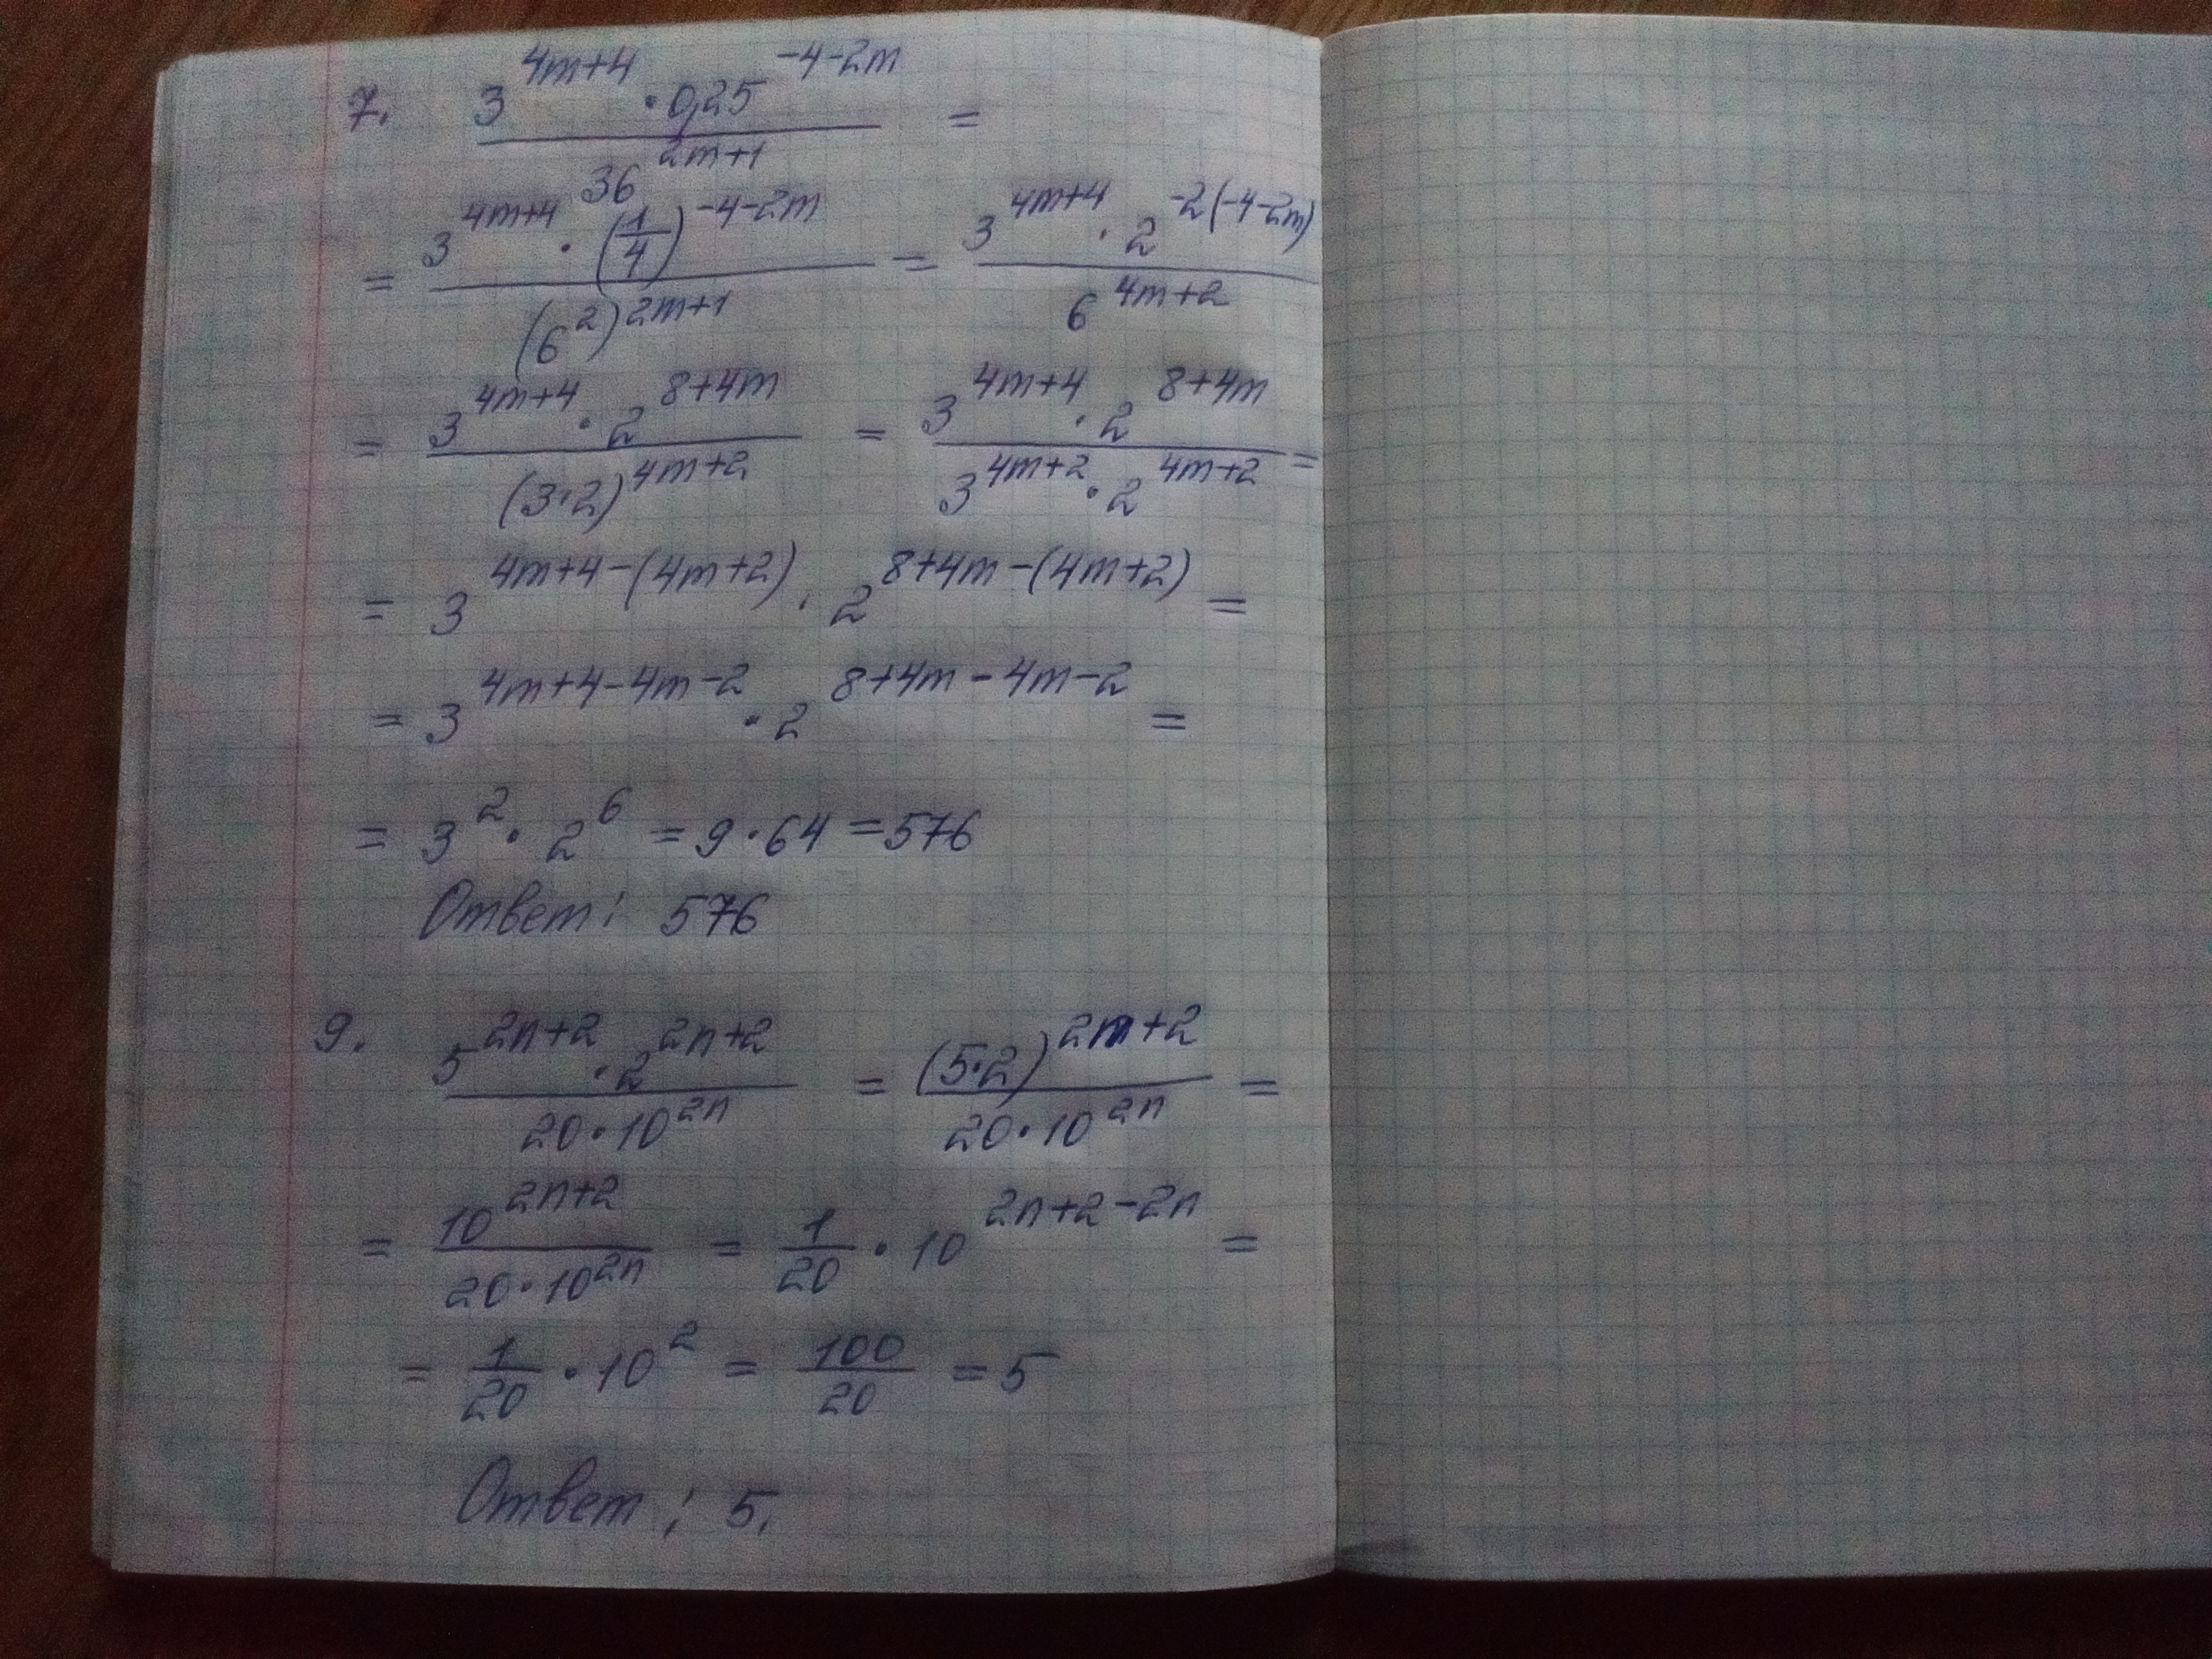 7. \frac{3^{4m+4} \cdot 0,25^{-4-2m}}{36^{2m+1}} =
= \frac{3^{4m+4} \cdot (\frac{1}{4})^{-4-2m}}{(6^2)^{2m+1}} = \frac{3^{4m+4} \cdot 2^{-2(-4-2m)}}{6^{4m+2}}
= \frac{3^{4m+4} \cdot 2^{8+4m}}{(3 \cdot 2)^{4m+2}} = \frac{3^{4m+4} \cdot 2^{8+4m}}{3^{4m+2} \cdot 2^{4m+2}} =
= 3^{4m+4-(4m+2)} \cdot 2^{8+4m-(4m+2)} =
= 3^{4m+4-4m-2} \cdot 2^{8+4m-4m-2} =
= 3^2 \cdot 2^6 = 9 \cdot 64 = 576
Ответ: 576
9. \frac{5^{2n+2} \cdot 2^{2n+2}}{20 \cdot 10^{2n}} = \frac{(5 \cdot 2)^{2n+2}}{20 \cdot 10^{2n}} =
= \frac{10^{2n+2}}{20 \cdot 10^{2n}} = \frac{1}{20} \cdot 10^{2n+2-2n} =
= \frac{1}{20} \cdot 10^2 = \frac{100}{20} = 5
Ответ: 5.